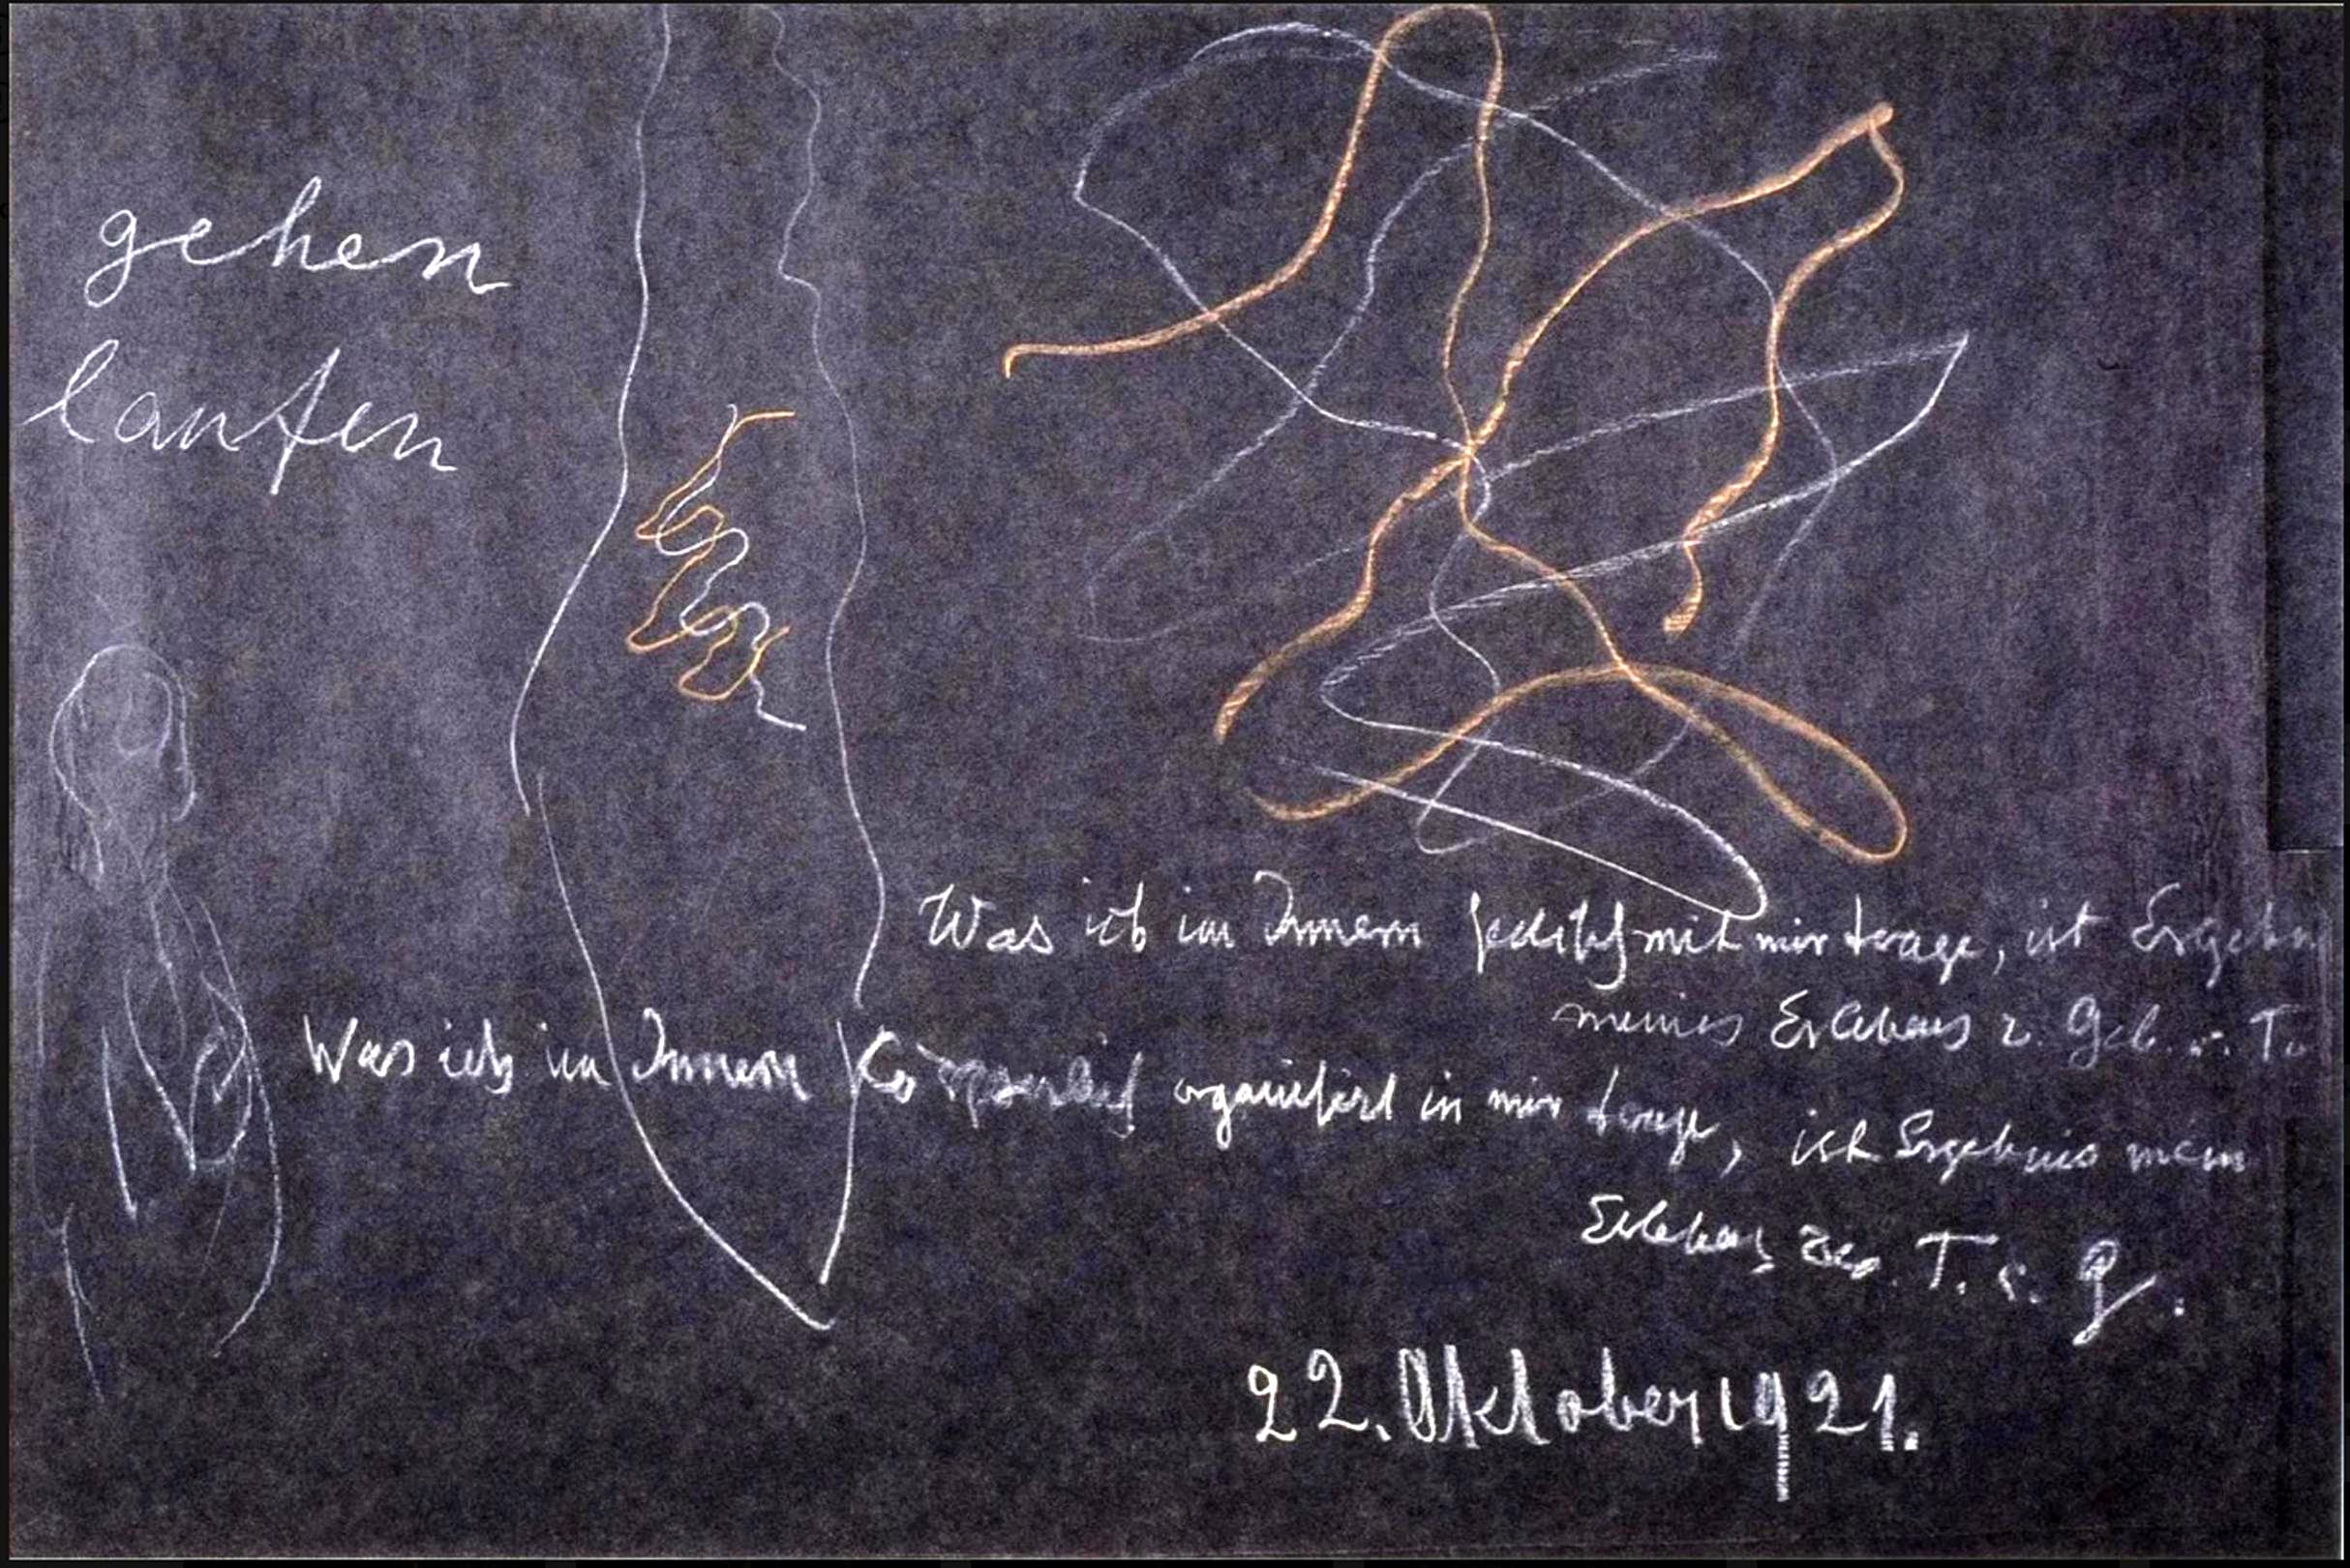 gehen
laufen
Was ich im Innern seelisch mit mir trage, ist Ergebn
meines Erlebens z. Geb. u. To
Was ich im Innern körperlich organisiert in mir trage, ist Ergebnis mein
Erlebens zw. T. u. G.
22. Oktober 1921.